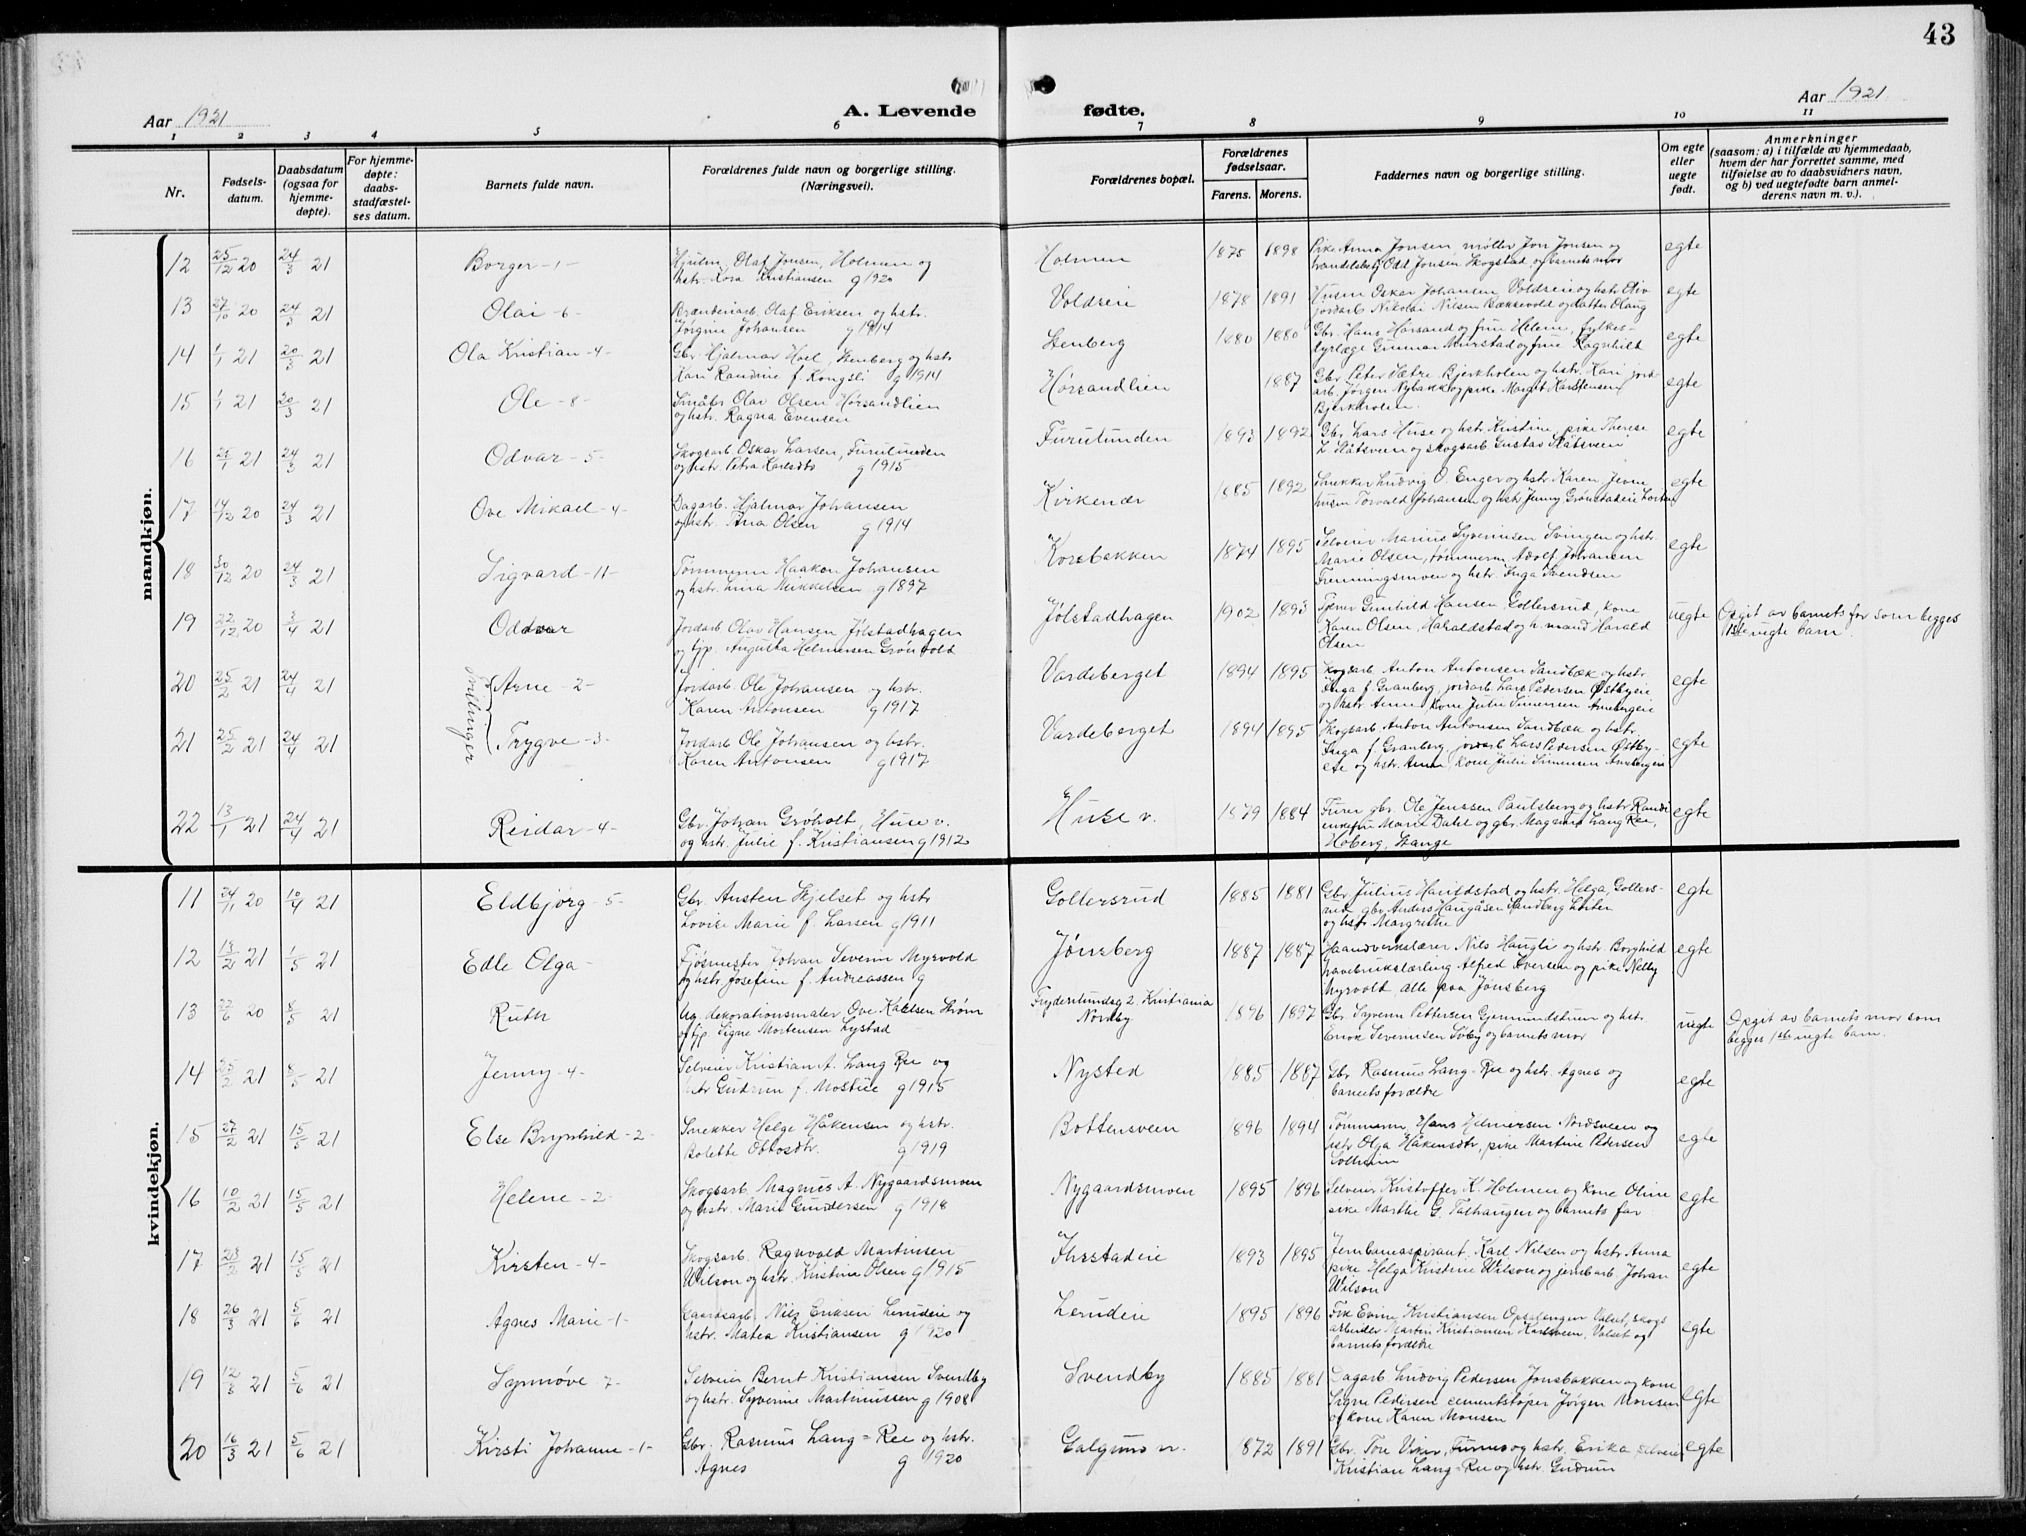 43
Aar 1921
A. Levende fødte.
Aar 1921
1 2 3 4 5 6 7 8 9 10 11
Nr.
Fødsels-
datum.
Daabsdatum
(ogsaa for
hjemme-
døpte).
For hjemme-
døpte:
daabs-
stadfæstel-
ses datum.
Barnets fulde navn.
Forældrenes fulde navn og borgerlige stilling.
(Næringsvei).
Forældrenes bopæl.
Forældrenes
fødselsaar.
Farens. Morens.
Faddernes navn og borgerlige stilling.
Om egte
eller
uegte
født.
Anmerkninger
(saasom: a) i tilfælde av hjemmedaab,
hvem der har forrettet samme, med
tilføielse av to daabsvidners navn,
og b) ved uegtefødte barn anmel-
derens navn m. v.).
mandkjøn.
12 25/12 20 24/3 21 Borger -1-
Hjulm. Olaf Jonsen, Holmen og
hstr. Kora Kristiansen g 1920
Holmen 1875 1898
Pike Anna Jonsen møller Jon Jonsen og
handelsbtj Odd Jonsen Skogstad og barnets mor
egte
13 27/10 20 24/3 21 Olai -6-
Brænderiarb. Olaf Eriksen og hstr.
Jørgine Johansen g 1914
Voldseie 1878 1891
Husm Oskar Johansen Voldseie og hstr Oliv
jordarb Nikolai Nilsen Bækkevold og datter Olaug
egte
14 1/1 21 20/3 21 Ola Kristian -4-
Gbr. Hjalmar Hoel, Stenberg og hstr
Kari Randine f. Kongsli g 1914
Stenberg 1880 1880
Gbr. Hans Hørsand og frue Helene, fylkes-
dyrlæge Gunnar Murstad og frue Ragnhild
egte
15 1/1 21 20/3 21 Ole -8-
Småbr Olav Olsen Hørsandlien
og hstr. Ragna Evensen
Hørsandlien 1887
Gbr Peter Sætre Bjerkholen og hstr. Kari jord-
arb. Jørgen Nybakk og pike Margit Karstensen
Bjerkholen.
egte
16 25/1 21 24/3 21 Odvar -5-
Skogsarb Oskar Larsen, Furulunden
og hstr Petra Karlsdtr g 1915
Furulunden 1893 1892
Gbr Lars Huse og hstr. Kristine, pike Therese
L. Slåtsveen og skogsarb Gustav Slåtsveen
egte
17 14/12 20 24/3 21 Ove Mikael -4-
Dagarb. Hjalmar Johansen
og hstr. Tina Olsen g 1914
Kirkenær 1885 1892
Snekker Ludvig O. Enger og hstr. Karen Jevne
husm Torvald Johansen og hstr Jenny Grønstadeie Loiten
egte
18 30/12 20 24/3 21 Sigvard -11-
Tømmerm Haakon Johansen
og hstr. Lina Mikkelsen g 1897
Korsbakken 1874 1895
Selveier Marius Syverinsen Svingen og hstr.
Marie Olsen, tømmerm Adolf Johansen
Fremmingsmoen og hstr. Inga Svendsen
egte
19 22/12 20 3/4 21 Oddvar
Jordarb. Olav Hansen Jølstadhagen
og tjp. Augusta Helmersen Grønvold
Jølstadhagen 1902 1893
Tjener Gunhild Hansen Gollersrud, kone
Karen Olsen, Haraldstad og h. mand Harald
Olsen
uegte
Opgit av barnets far som begges
1ste uegte barn.
Tvillinger
20 25/2 21 24/4 21 Arne -2-
Jordarb. Ole Johansen og hstr.
Karen Antonsen g 1917
Vardeberget 1894 1895
Skogsarb Anton Antonsen Sandbæk og hstr
Inga f. Granberg, jordarb Lars Pedersen Østbyeie
og hstr Anne kone Julie Simensen Arnebergeie
egte
21 25/2 21 24/4 21 Trygve -3-
Jordarb Ole Johansen og hstr.
Karen Antonsen g 1917
Vardeberget 1894 1895
Skogsarb. Anton Antonsen Sandbæk og hstr.
Inga f. Granberg, jordarb Lars Pedersen Østby-
eie og hstr Anne, kone Julie Simensen Arnebergeie
egte
22 13/1 21 24/4 21 Reidar -4-
Gbr. Johan Grøholt, Huse v.
og hstr. Julie f. Kristiansen g 1912
Huse v. 1879 1884
Furu gbr. Ole Jenssen Paulsberg og hstr Randi
enkefru Marie Dahl og gbr. Magnus Lang Ree,
Hoberg, Stange
egte
kvindekjøn.
11 24/11 20 10/4 21 Eldbjørg -5-
Gbr Austen Skjelset og hstr
Lovise Marie f. Larsen g 1911
Gollersrud 1885 1881
Gbr Julius Harildstad og hstr. Helga, Gollers-
rud, gbr Anders Haugåsen Sandberg Løiten
og hstr Margrethe
egte
12 13/2 21 1/5 21 Edle Olga -
Fjøsmester Johan Severin Myrvold
og hstr Josefine f. Andreassen g
Jønsberg 1887 1887
Haandverkslærer Nils Haugli og hstr Borghild
havebrukslærling Alfred Iversen og pike Nelly
Myrvold, alle paa Jønsberg
egte
13 22/6 20 8/5 21 Ruth
Ug. dekorationsmaler Ove Karlsen Strøm
og tjp Signe Mortensen Lystad
Frydenlundsg 2. Kristiania
Nordby 1896 1897
Gbr. Syvern Pettersen Gjermundstuen og hstr.
Enok Severinsen Søby og barnets mor
uegte
Opgit av barnets mor som
begges 1ste uegte barn.
14 25/2 21 8/5 21 Jenny -4-
Selveier Kristian A. Lang Ree og
hstr Gudrun f. Mostue g 1915
Nysted 1885 1887
Gbr Rasmus Lang-Ree og hstr. Agnes og
barnets forældre
egte
15 27/2 21 15/5 21 Else Brynhild -2-
Snekker Helge Håkensen og hstr.
Bolette Ottosdtr. g 1919
Bottensveen 1896 1894
Tømmerm. Hans Helmersen Nordsveen og
hstr Olga Håkensdtr, pike Martine Pedersen
Solheim
egte
16 10/2 21 15/5 21 Helene -2-
Skogsarb. Magnus A. Nygaardsmoen
og hstr. Marie Gundersen g 1918
Nygaardsmoen 1895 1896
Selveier Kristoffer K. Holmen og kone Oline
pike Marthe G. Talhaugen og barnets far
egte
17 23/2 21 15/5 21 Kirsten -4-
Skogsarb Ragnvald Martinsen
Wilson og hstr. Kristine Olsen g 1915
Ihrstadeie 1893 1895
Jernbaneaspirant Karl Nilsen og hstr Anna
pike Helga Kristine Wilson og jernbarb Johan
Wilson
egte
18 26/3 21 5/6 21 Agnes Marie -1-
Gaardsarb. Nils Eriksen Lerudeie og
hstr. Matea Kristiansen g 1920
Lerudeie 1895 1896
Frk Evine Kristiansen Opsalenger Valset, skogs
arbeider Martin Kristiansen Karlsveen, Valset og
barnets forældre
egte
19 12/3 21 5/6 21 Synnøve 7-
Selveier Bernt Kristiansen Svendby
og hstr. Syverine Martinussen g 1908
Svendby 1885 1881
Dagarb Ludvig Pedersen Jønsbakken og kone
Signe Pedersen cementstøper Jørgen Monsen
og kone Karen Monsen
egte
20 16/3 21 5/6 21 Kirsti Johanne -1-
Gbr. Rasmus Lang-Ree og hstr.
Agnes g 1920
Galgum n. 1872 1891
Gbr. Tore Viker, Furnes og hstr. Erika selveier
Kristian Lang-Ree og hstr Gudrun
egte